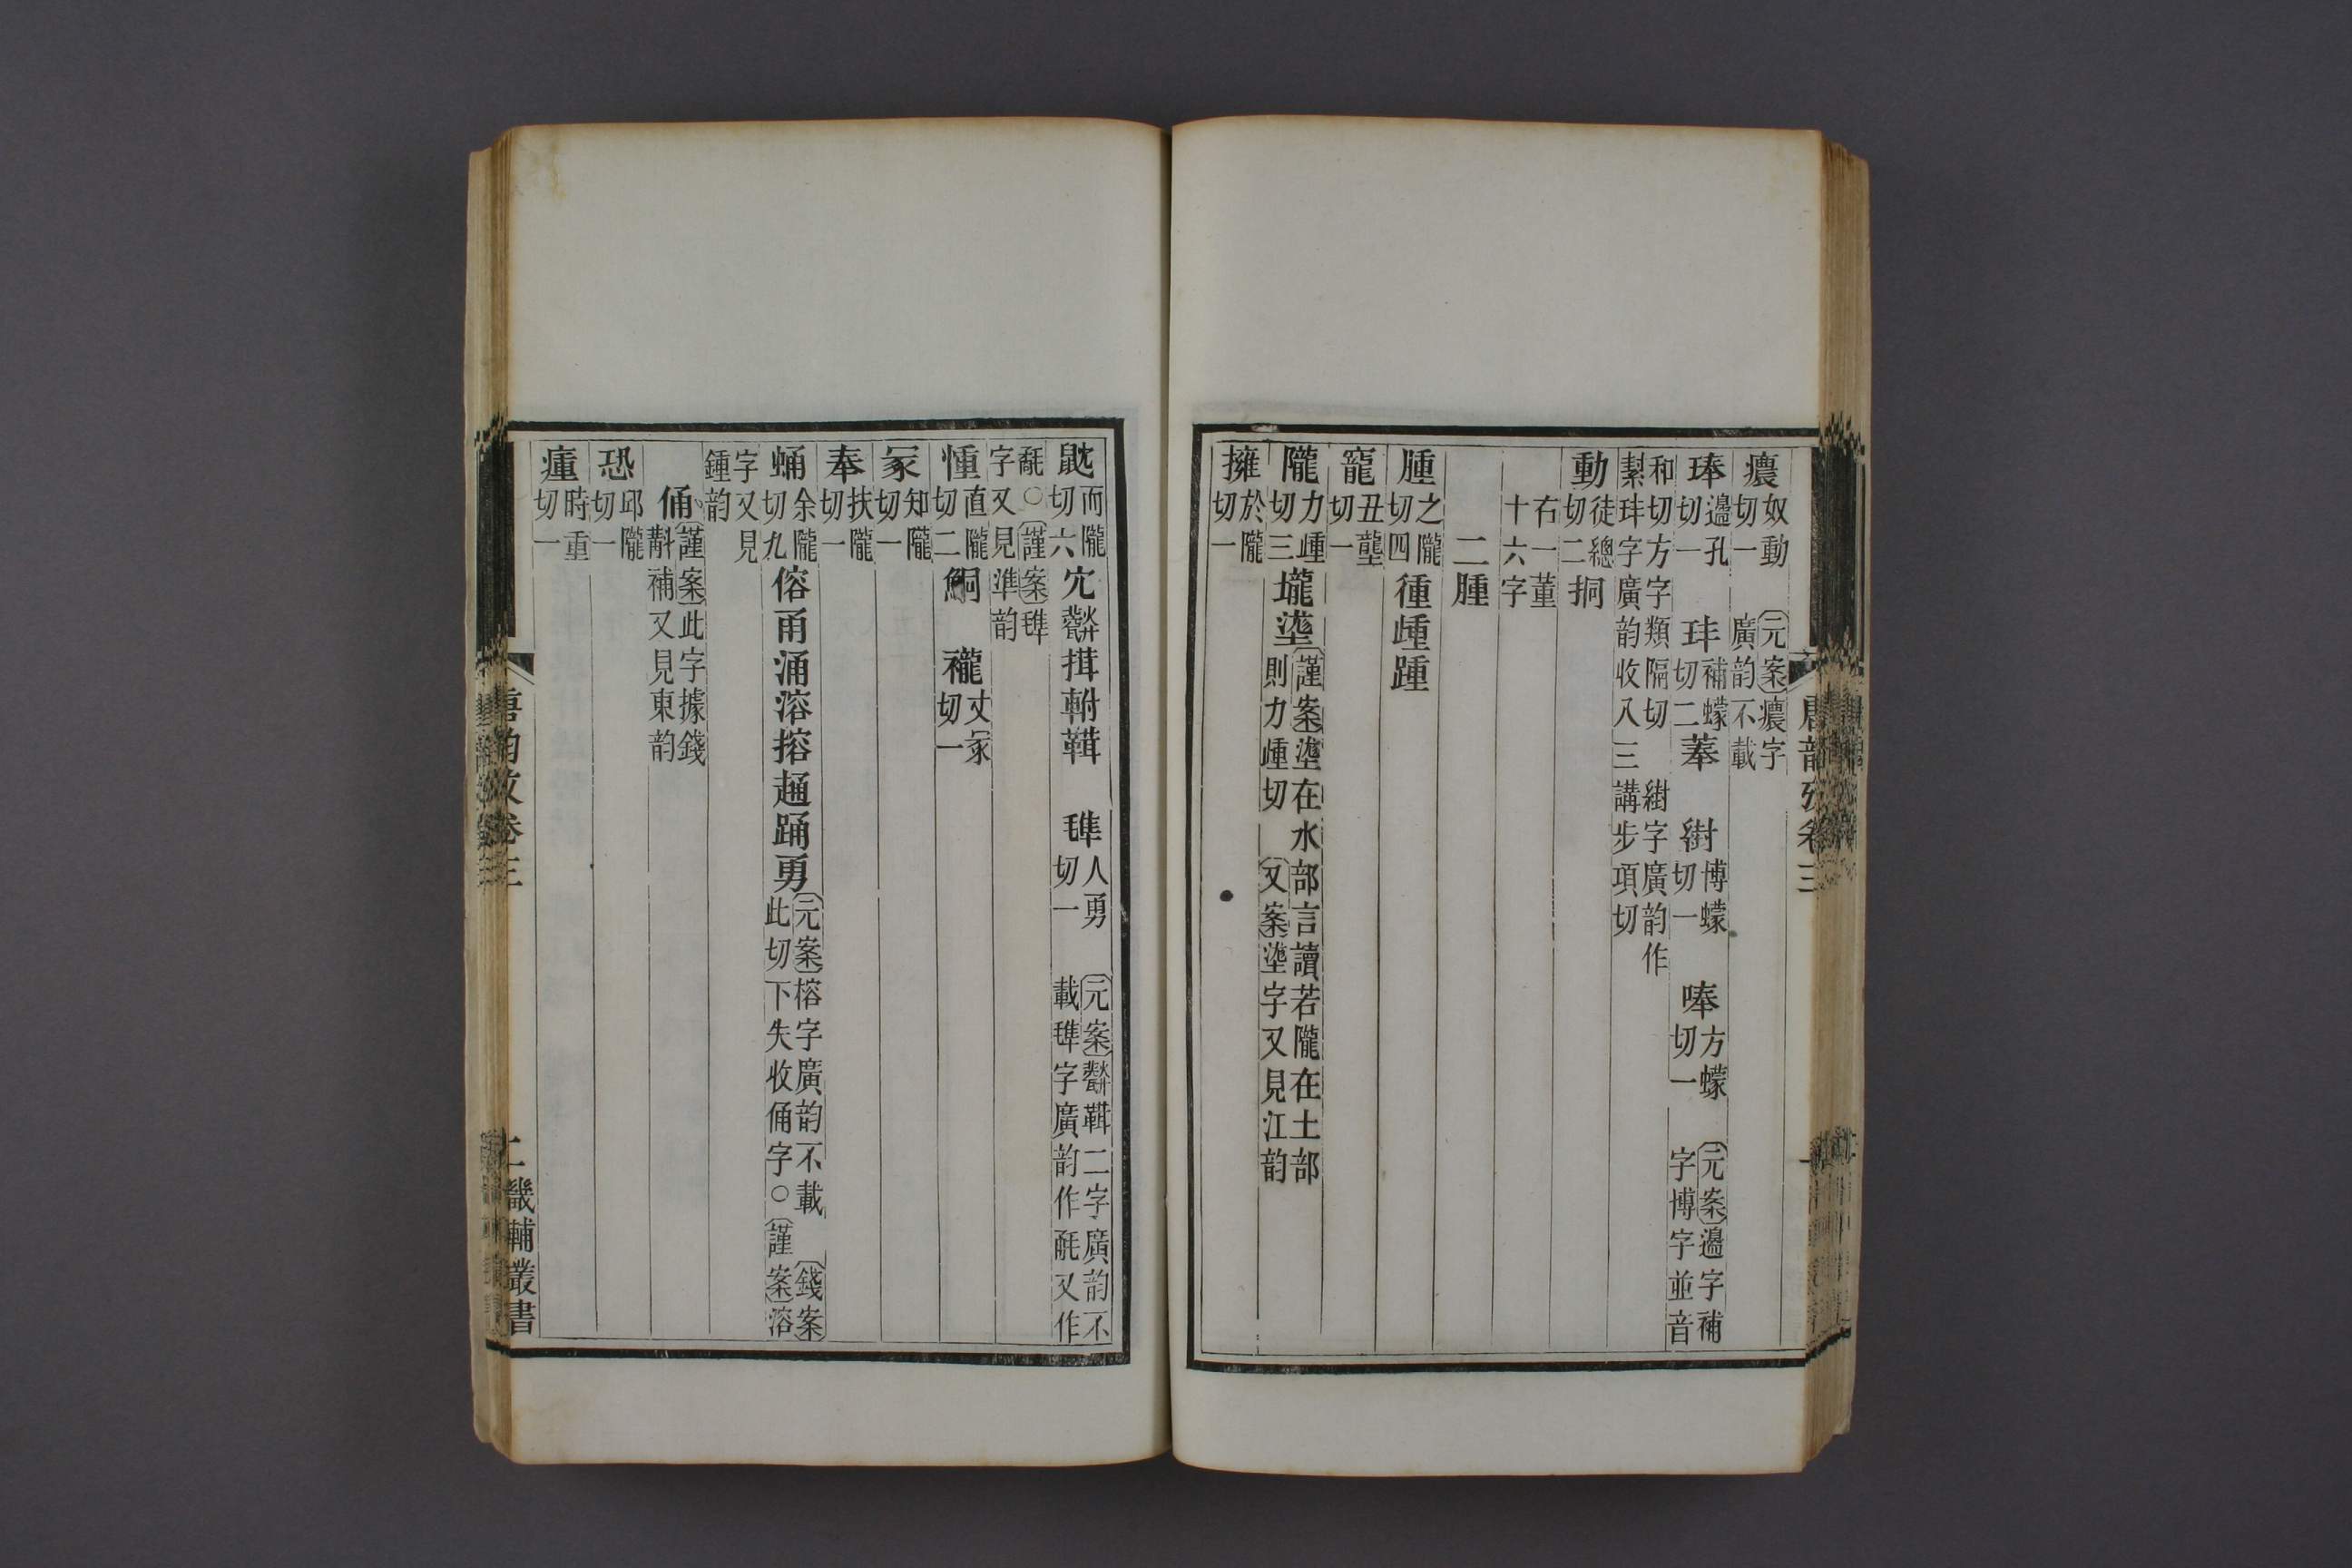 癑奴動切一　元案癑字廣韵不載
琫邊孔切一　玤補蠓切二菶　紨博蠓切一　唪方蠓切一　元案邊字補字博字並音
和切方字類隔切　紨字廣韵作絜玤字廣韵收入三講步項切
動徒總切二挏
右一董十六字
二腫
腫之隴切四㣫歱踵
寵丑壟切一
隴力歱切三壠𡍊謹案𡍊在水部言讀若隴在土部則力歱切　又案𡍊字又見江韵
擁於隴切一
唐韵攷卷三
而隴切六宂 揖軵鞋　 人勇切一　元案 二字廣韵不載 字廣韵作 又作
○謹案 字又見準韵
㣫直隴切二鮦　襱丈冢切一
冢知隴切一
奉扶隴切一
蛹余隴切九傛甬涌溶搈趯踊勇元案榕字廣韵不載　錢案此切下失收俑字○謹案溶
字又見鍾韵
俑謹案此字據錢斠補又見東韵
恐邱隴切一
㾯時重切一
唐韵攷卷三
二
畿輔叢書